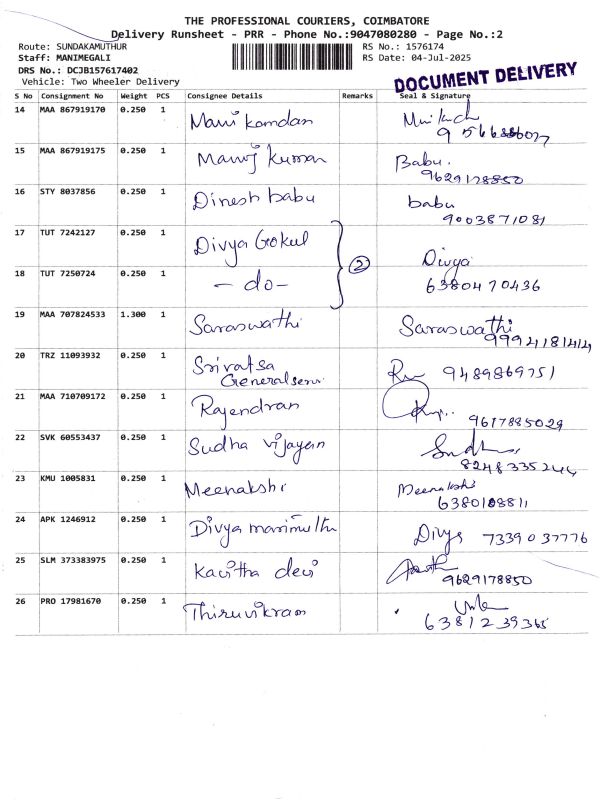 THE PROFESSIONAL COURIERS, COIMBATORE
Delivery Runsheet - PRR - Phone No.:9047080280 - Page No.:2
Route: SUNDAKAMUTHUR RS No.: 1576174
Staff: MANIMEGALI RS Date: 04-Jul-2025
DRS No.: DCJB157617402
Vehicle: Two Wheeler Delivery
DOCUMENT DELIVERY
S No Consignment No Weight PCS Consignee Details Remarks Seal & Signature
14 MAA 867919170 0.250 1 Mani kandan
15 MAA 867919175 0.250 1 Manoj kumar Babu.
9629178850
16 STY 8037856 0.250 1 Dinesh babu babu
9003871081
17 TUT 7242127 0.250 1 Divya Gokul Divya
18 TUT 7250724 0.250 1 - do - 2 6380470436
19 MAA 707824533 1.300 1 Saraswathi Saraswathi
20 TRZ 11093932 0.250 1 Srivatsa 9489869751
21 MAA 710709172 0.250 1 Rajendran
9617885029
22 SVK 60553437 0.250 1 Sudha vijayan
23 KMU 1005831 0.250 1 Meenakshi Meenakshi
6380108811
24 APK 1246912 0.250 1 Divya marimuthu Divya 7339037776
25 SLM 373383975 0.250 1 Kavitha devi
9629178850
26 PRO 17981670 0.250 1 Thiruvikram
6381239365